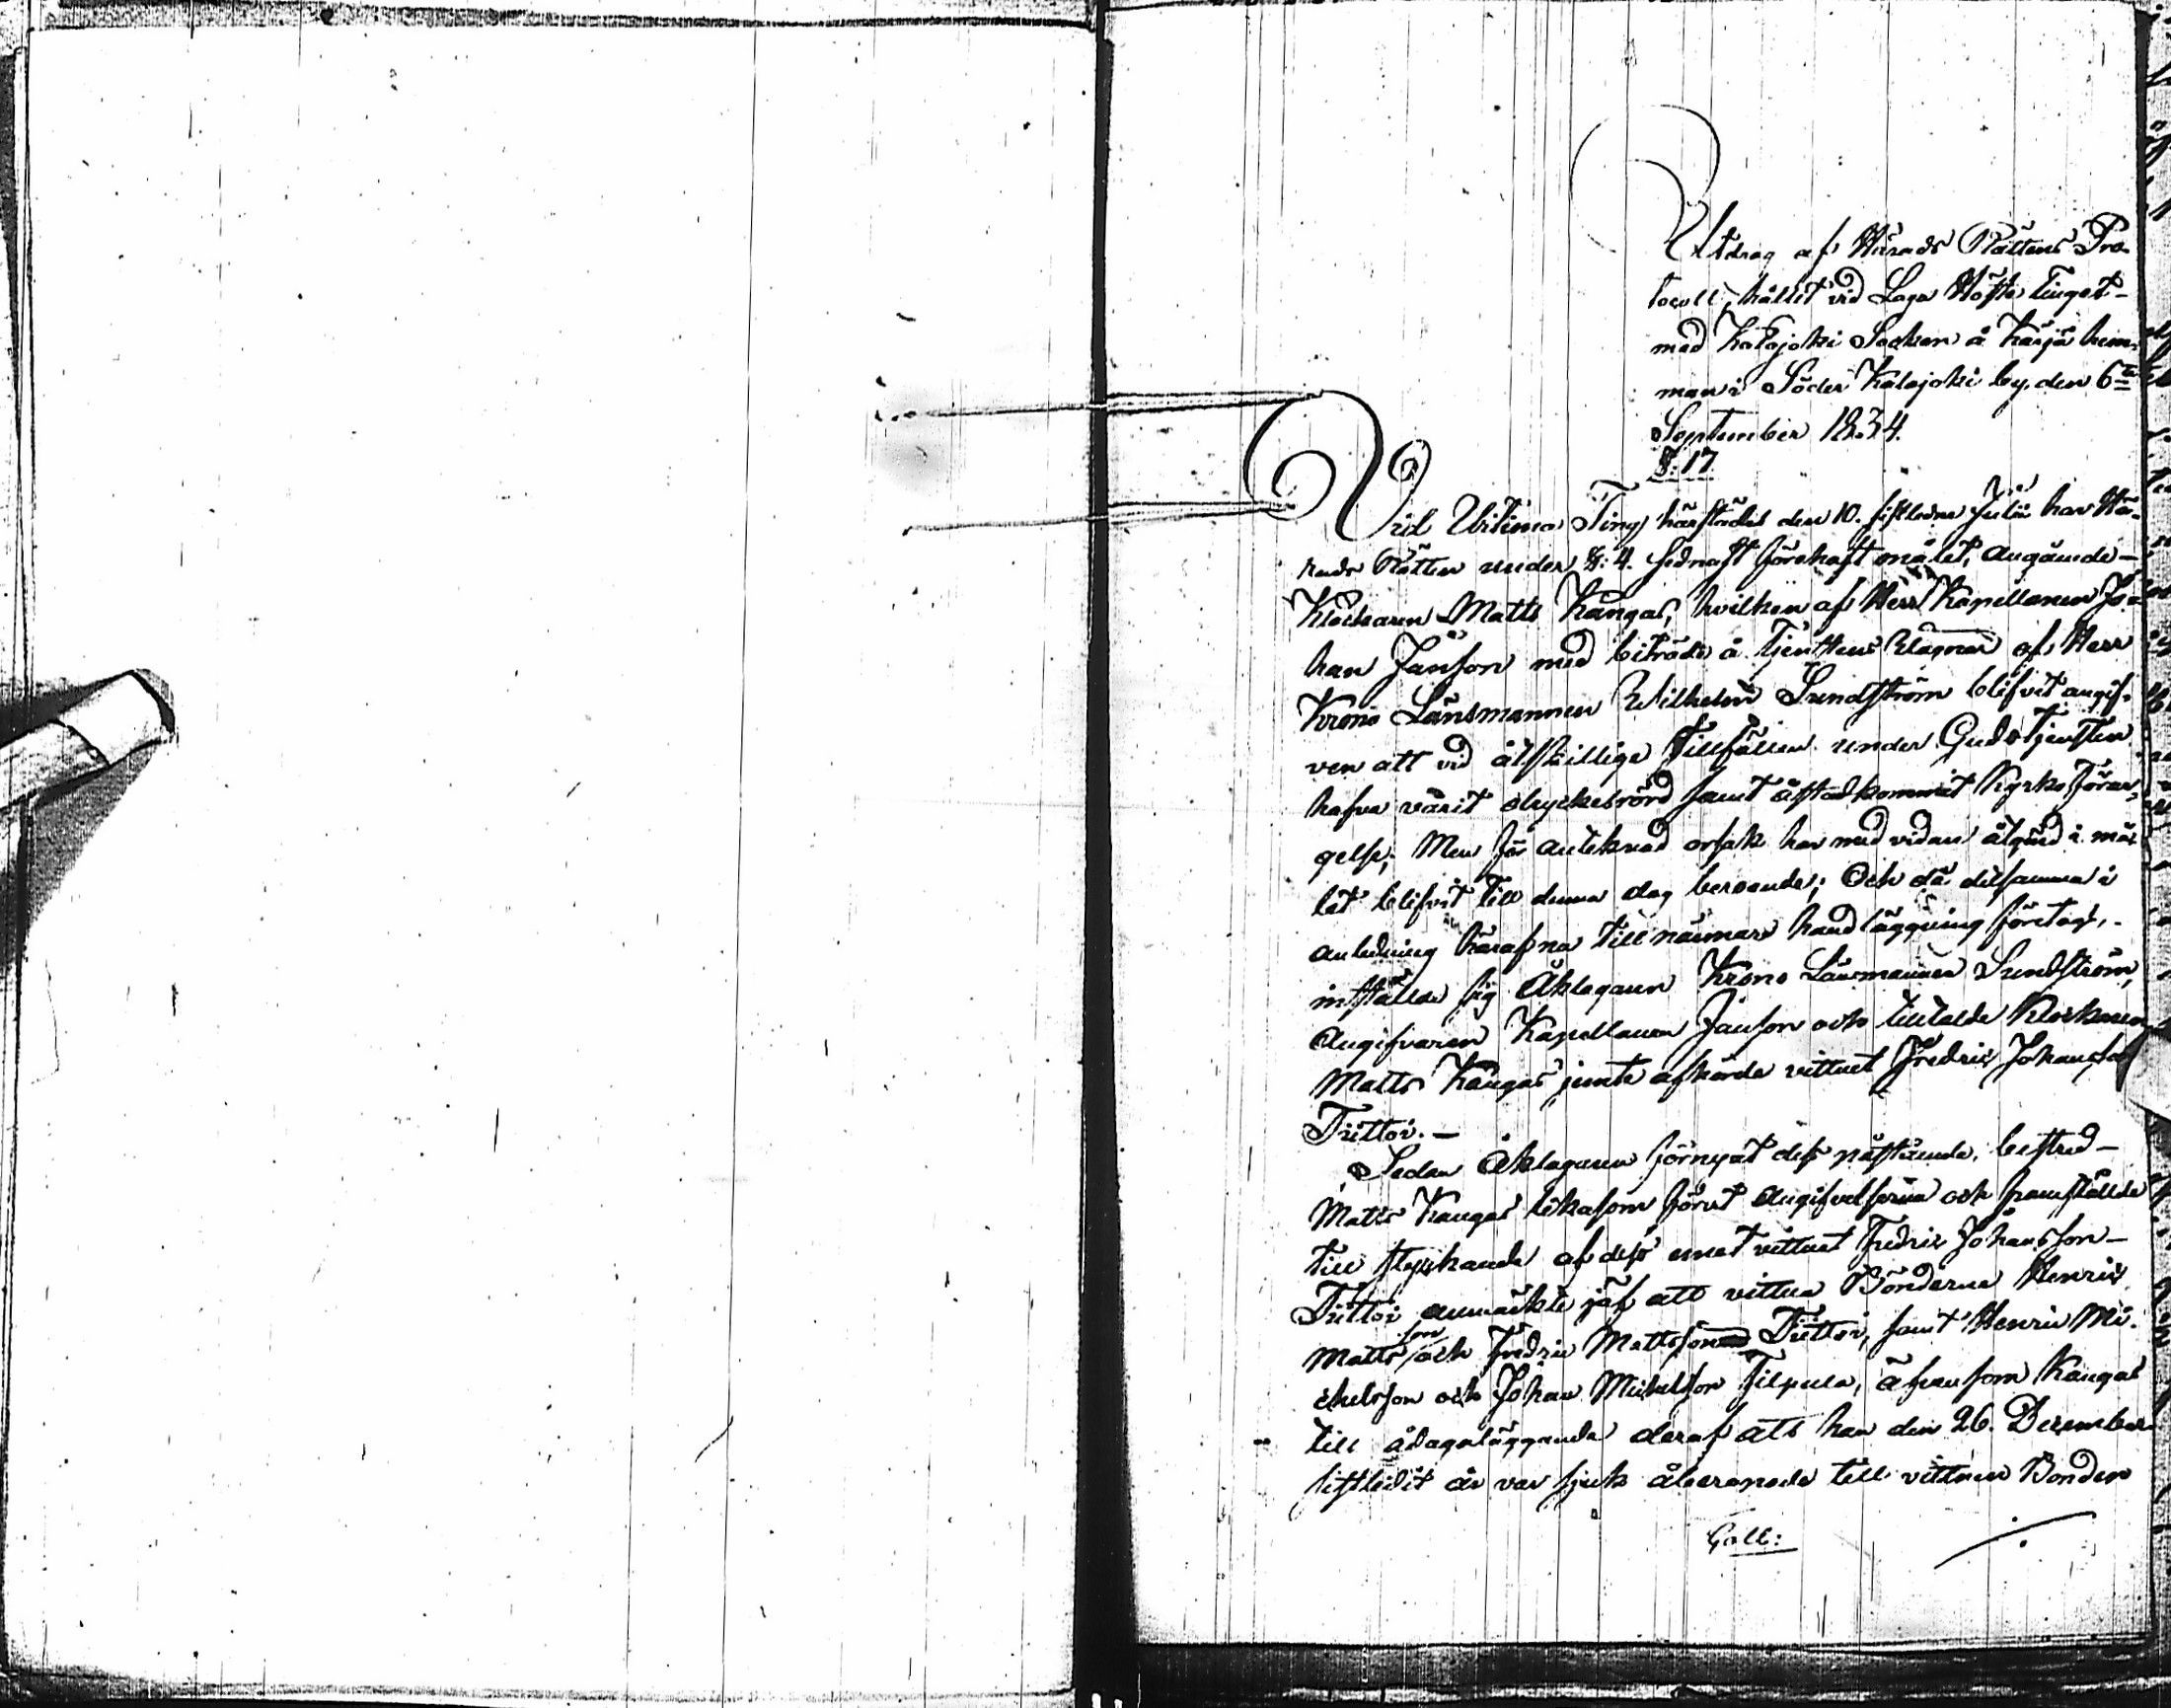 Utdrag af Härads Rättens Pro-
tocoll, hållit vid Laga Höste Tinget
med Kalajoki Socken å Karja hem-
man i Söder Kalajoki by, den 6te
September 1834.
§. 17
Vid Urtima Ting härstädes den 10. sistledne Julii har Hä-
rads Rätten under §: 4. sednast förehaft målet, angående
Klockaren Matts Kangas, hvilken af Herr Kapellanen Jo-
han Janson med biträde å tjenstens vägnar af Herr
Krono Länsmannen Wilhelm Sundström blifvit angif-
ven att vid åtskillige Tillfällen under Gudstjensten
hafva varit dryckesrörd samt åstadkommit Kyrko förar-
gelse; Men för anteknad orsak har med vidare åtgärd i må-
let blifvit till denna dag beroende; Och då detsamma i
anledning häraf nu till närmare handläggning företogs,
inställde sig Åklagaren Krono Länsmannen Sundström,
Angifvaren Kapellanen Janson och tilltalde Klockaren
Matts Kangas jemte afhörde vittnet Fredric Johansson
Tüttoi. —
Sedan Åklagaren förnyat dess påstående, bestred
Matts Kangas likasom förut angifvelserna och framställde
till styrkande af dess emot vittnet Fredric Johansson
Tüttoi anmärkte jäf att vittna Bönderne Henric
Matts son och Fredric Mattsson Tüttoi, samt Henric Mi-
chelsson och Johan Michelsson Tilpula, äfvensom Kangas
till ådagaläggande deraf att han den 26. December
sistledit år var sjuk åberopade till vittnen Bonden
Gall: